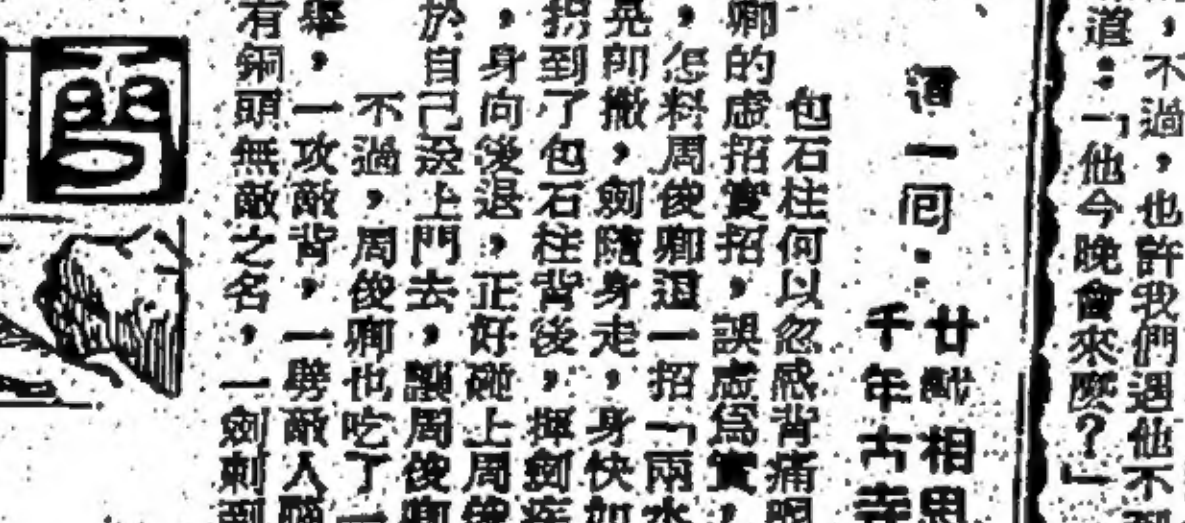 ，不過，也許我們遇他不到
道：「他今晚會來麼？」
第一回：廿載相思
千年古寺
包石柱何以忽感背痛眼
卿的虛招實招，誤虛爲實，
，怎料周俊卿這一招「兩水
晃卽撤，劍隨身走，身快如
拐到了包石柱背後，揮劍疾
，身向後退，正好碰上周俊
於自己送上門去，讓周俊卿
不過，周俊卿也吃了一
舉，一攻敵背，一劈敵人
有銅頭無敵之名，一劍刺到
雪